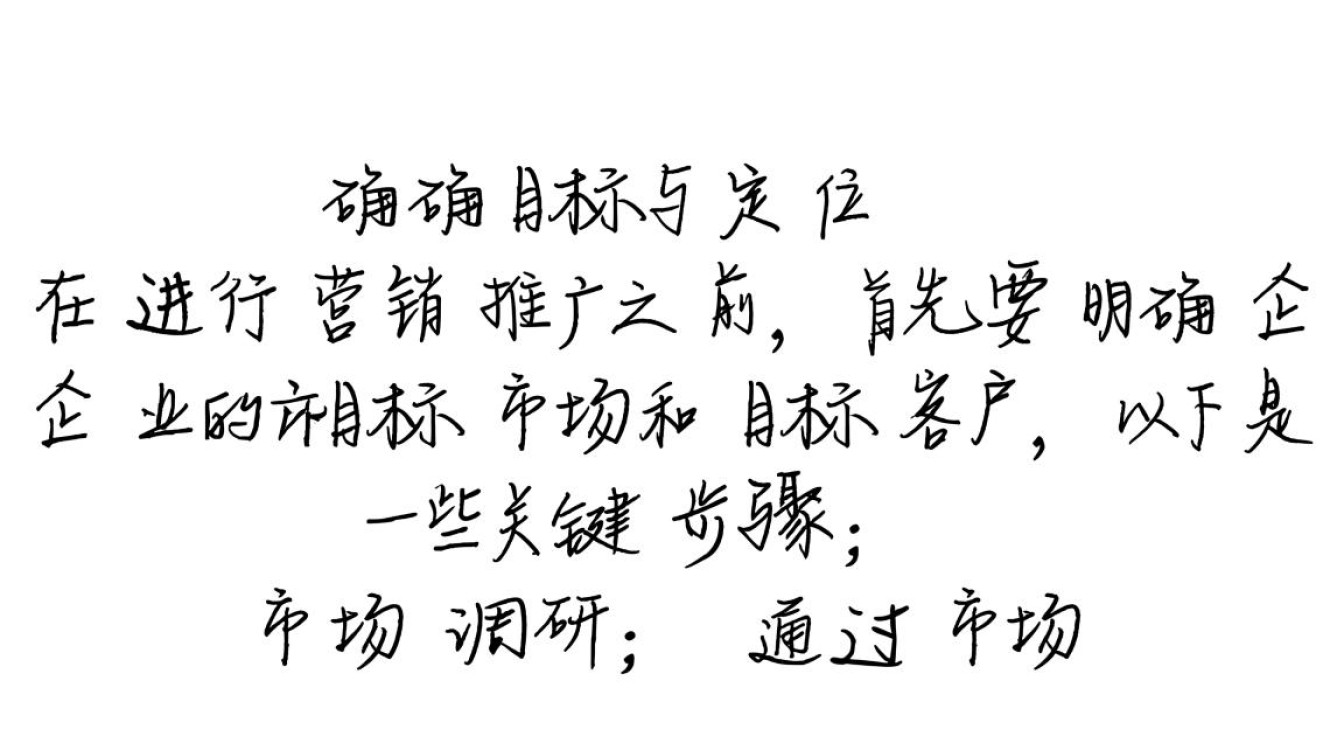 确确目标与定位
在进行营销推广之前，首先要明确企
企业的目标市场和目标客户，以下是
一些关键步骤；
市场调研；通过市场